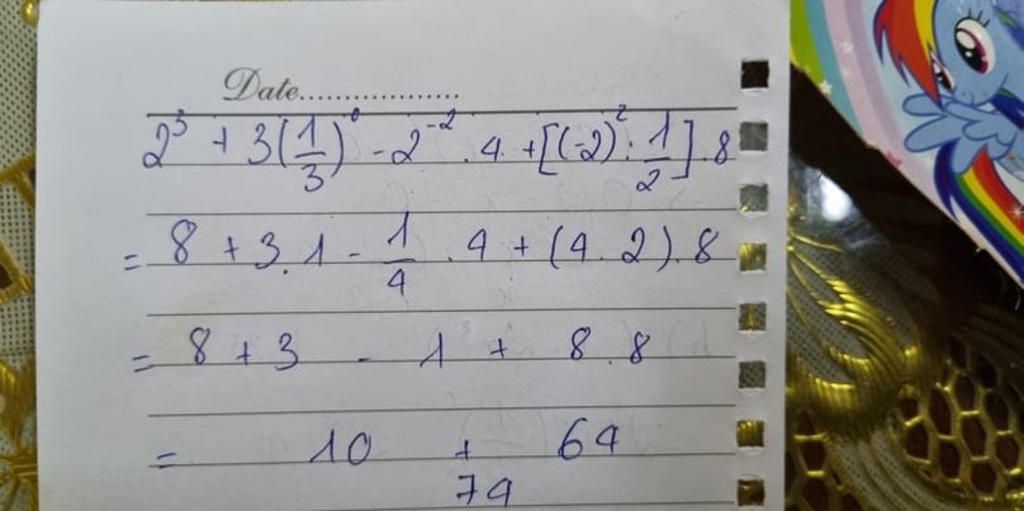 Date..................
2³ + 3(1/3)⁰ - 2⁻² . 4 + [(-2)² : 1/2] . 8
= 8 + 3 . 1 - 1/4 . 4 + (4 . 2) . 8
= 8 + 3 - 1 + 8 . 8
= 10 + 64
74